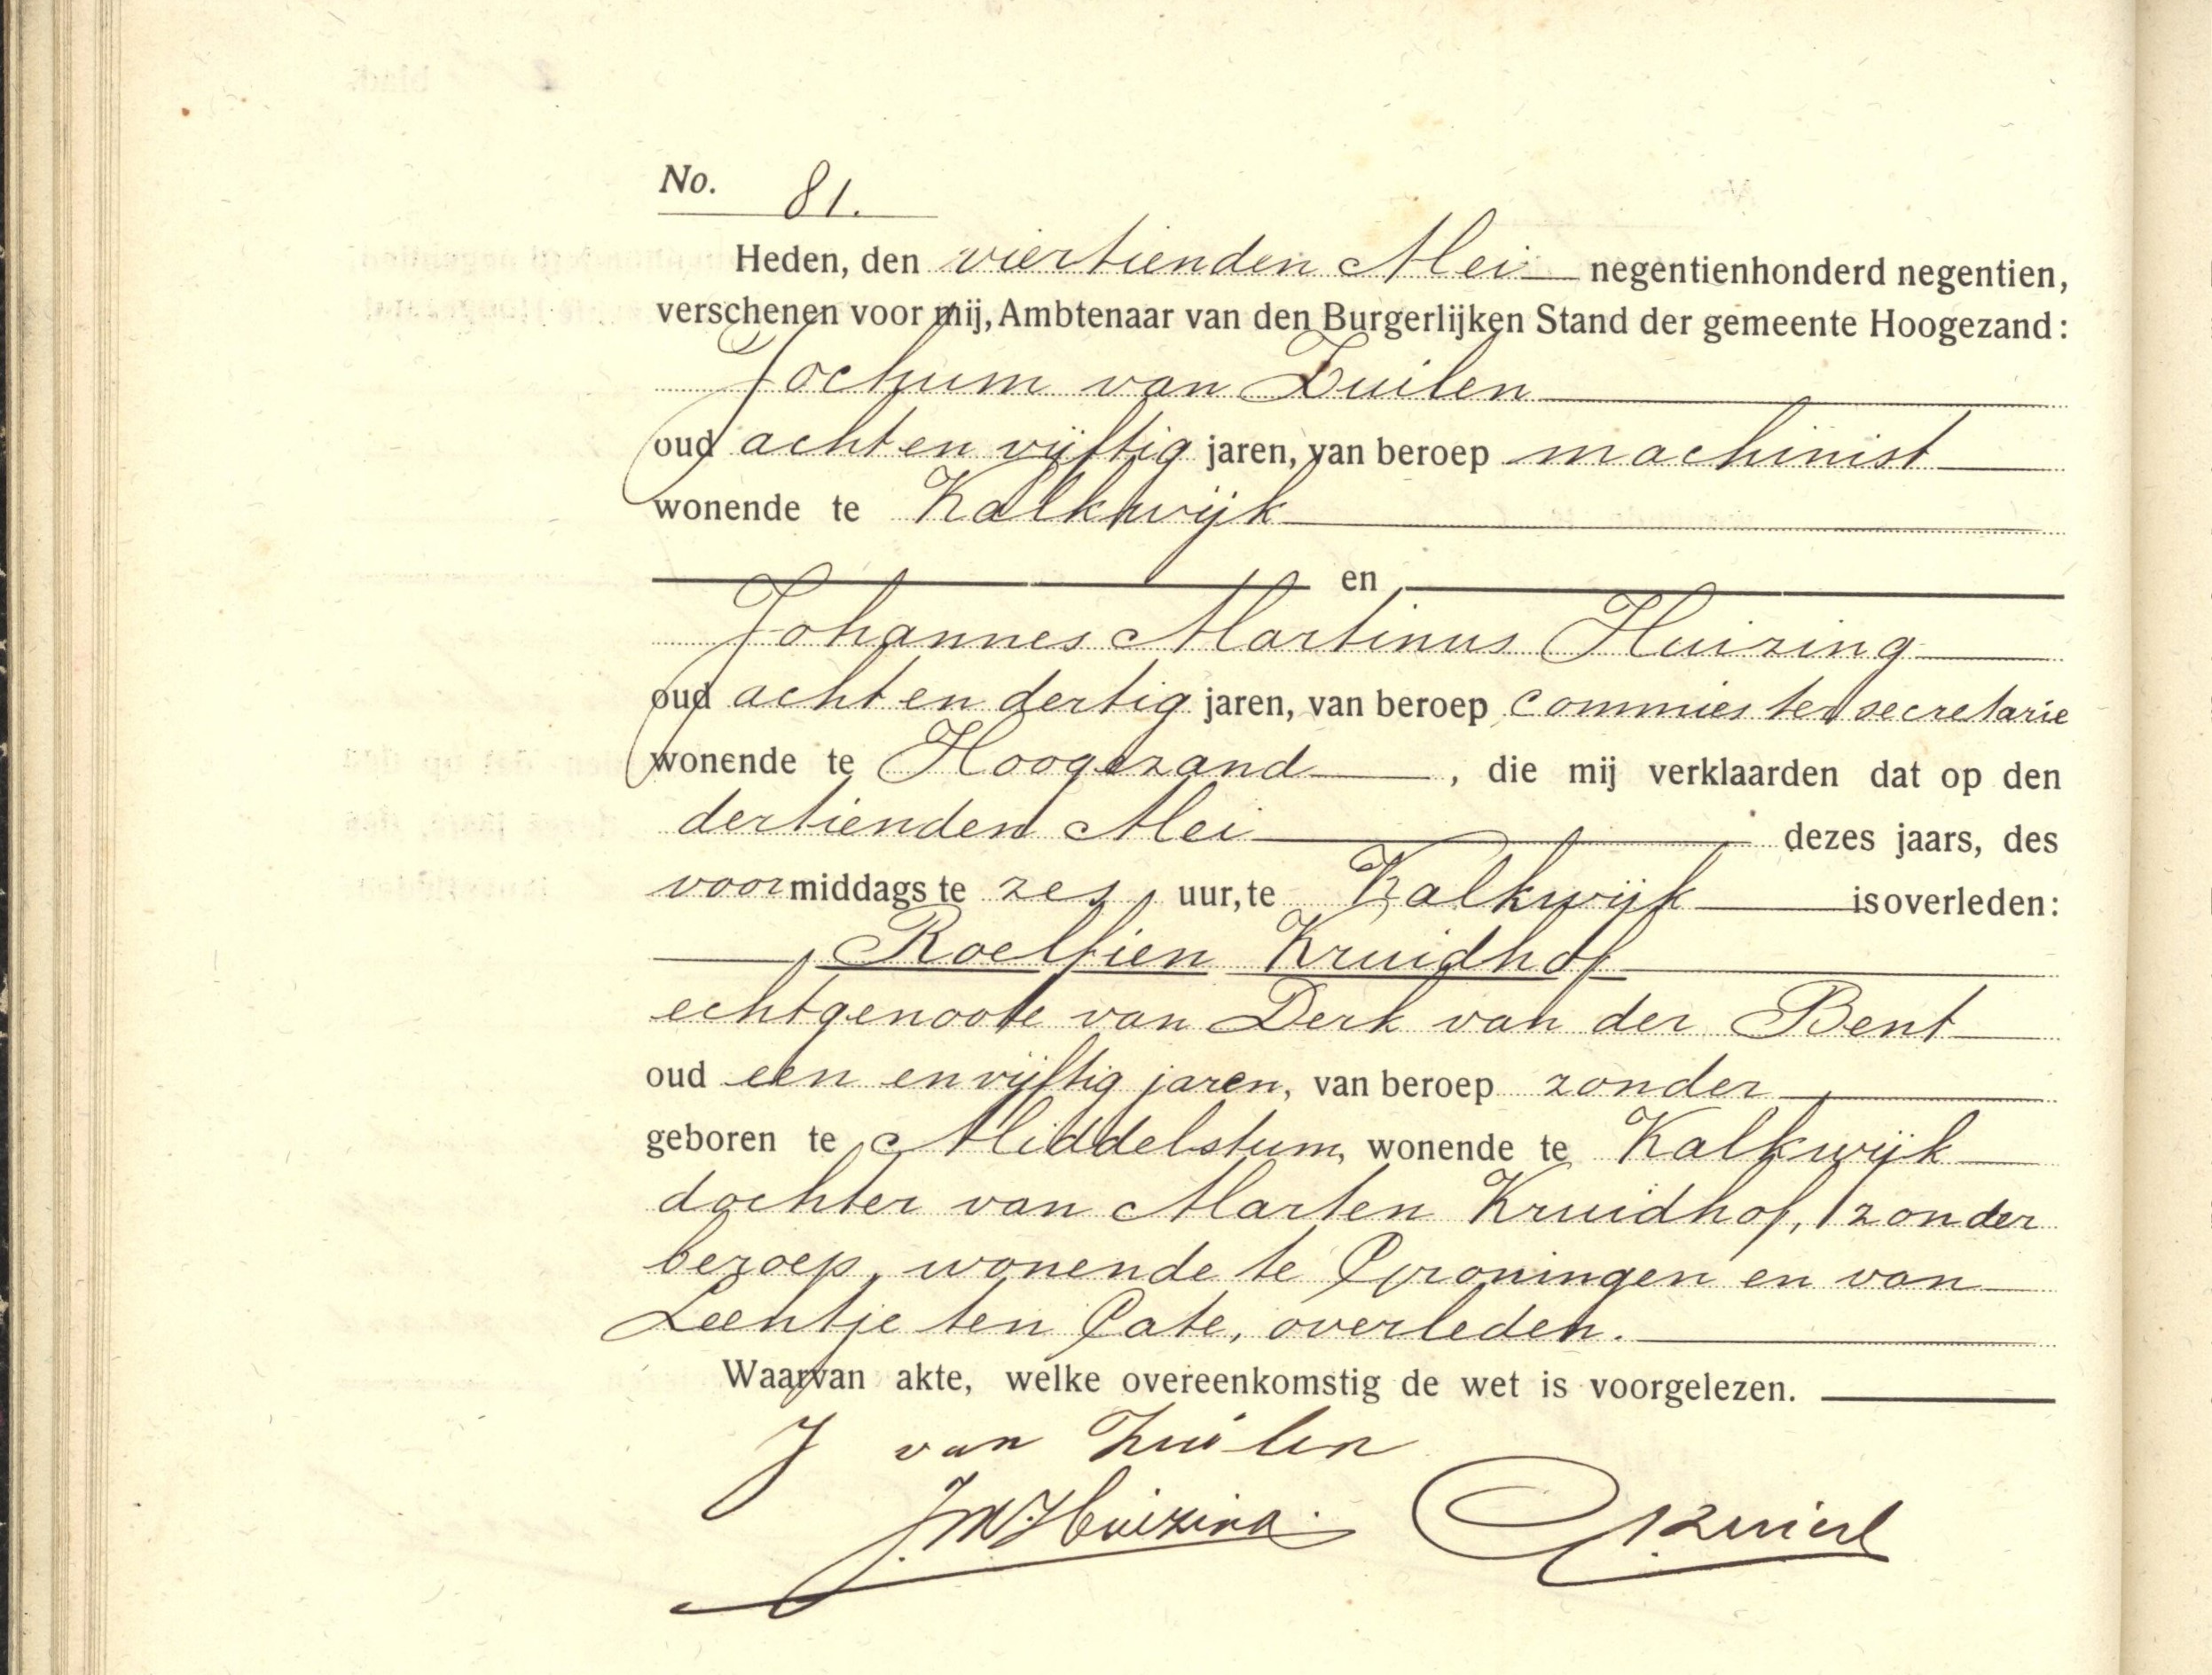 No. 81.
Heden, den viertienden Mei negentienhonderd negentien,
verschenen voor mij, Ambtenaar van den Burgerlijken Stand der gemeente Hoogezand:
Jochum van Zuilen
oud acht en vijftig jaren, van beroep machinist
wonende te Kalkwijk
en
Johannes Martinus Huizing
oud acht en dertig jaren, van beroep commies ter secretarie
wonende te Hoogezand, die mij verklaarden dat op den
dertienden Mei dezes jaars, des
voormiddags te zes uur, te Kalkwijk is overleden:
Roelfien Kruidhof
echtgenoote van Derk van der Bent
oud een en vijftig jaren, van beroep zonder
geboren te Middelstum, wonende te Kalkwijk
dochter van Marten Kruidhof, zonder
beroep, wonende te Groningen en van
Leentje ten Cate, overleden.
Waarvan akte, welke overeenkomstig de wet is voorgelezen.
J van Zuilen
JM Huizing.